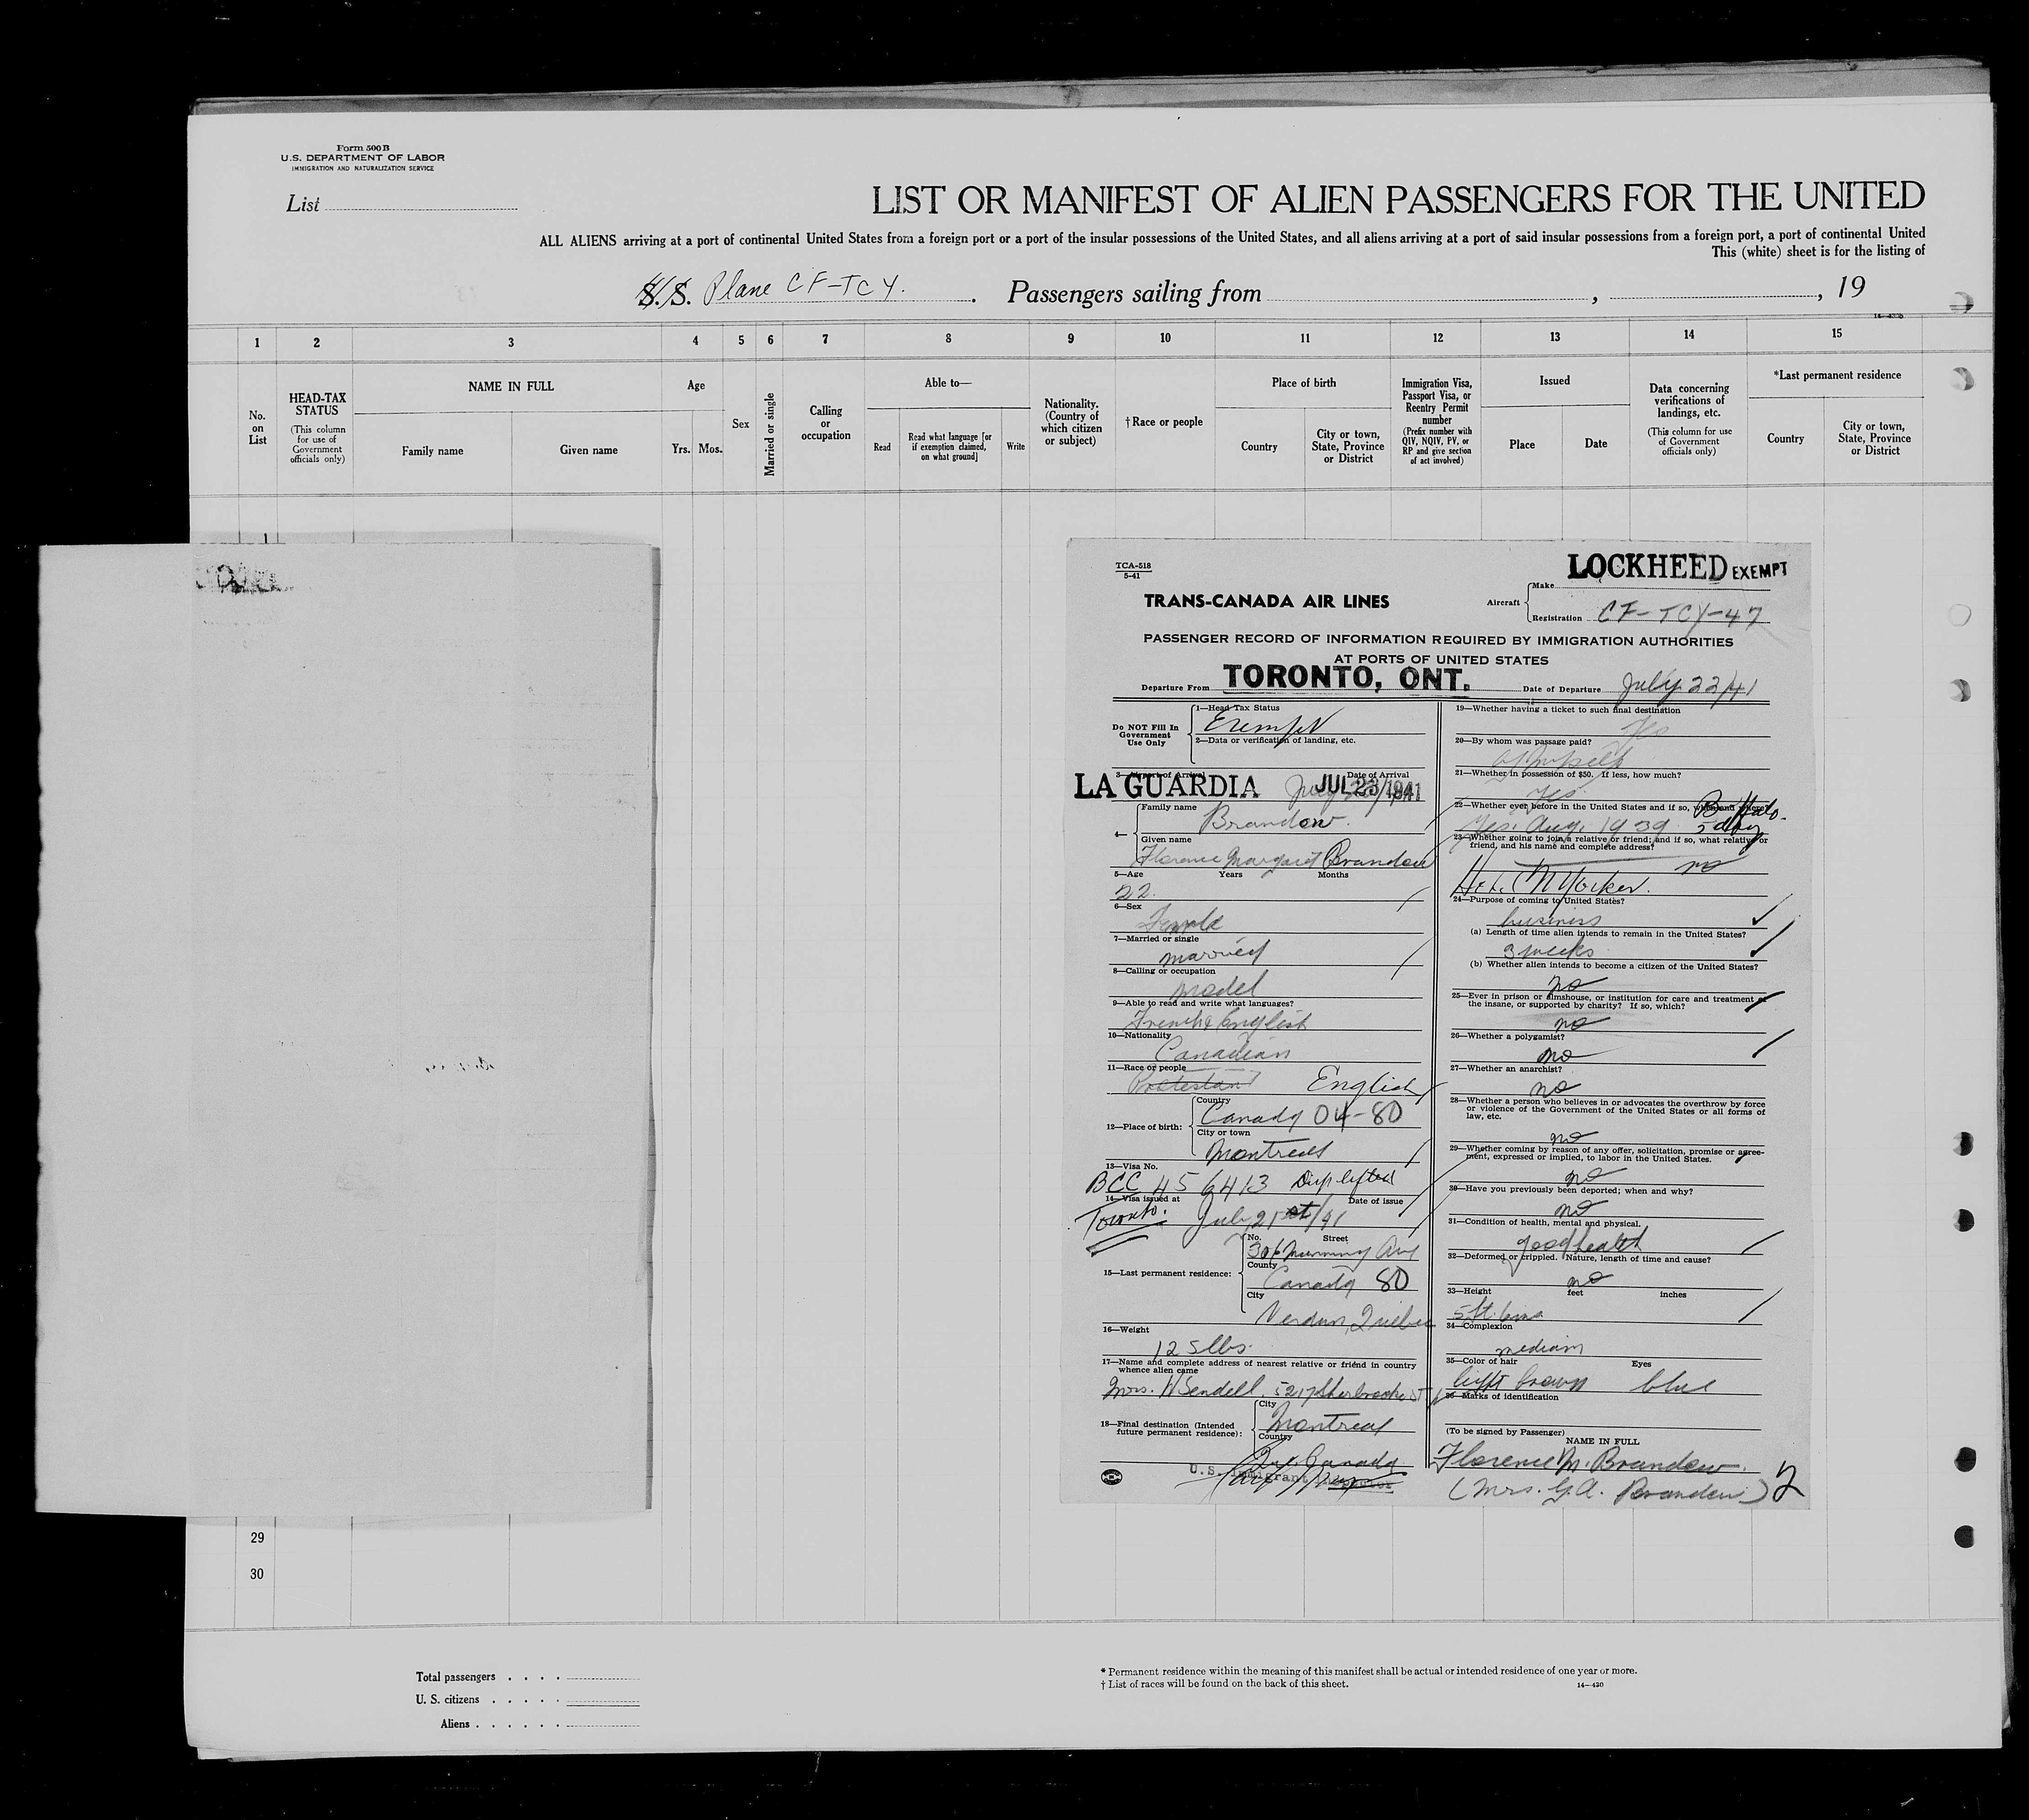 Form 500 B
U.S. DEPARTMENT OF LABOR
IMMIGRATION AND NATURALIZATION SERVICE
List
LIST OR MANIFEST OF ALIEN PASSENGERS FOR THE UNITED
ALL ALIENS arriving at a port of continental United States from a foreign port or a port of the insular possessions of the United States, and all aliens arriving at a port of said insular possessions from a foreign port, a port of continental United
This (white) sheet is for the listing of
S.S. Plane CF-TCY. Passengers sailing from , , 19
1 2 3 4 5 6 7 8 9 10 11 12 13 14 15
No. on List
HEAD-TAX STATUS
(This column for use of Government officials only)
NAME IN FULL
Family name
Given name
Age
Yrs. Mos.
Sex
Married or single
Calling or occupation
Able to—
Read
Read what language [or if exemption claimed, on what ground]
Write
Nationality. (Country of which citizen or subject)
† Race or people
Place of birth
Country
City or town, State, Province or District
Immigration Visa, Passport Visa, or Reentry Permit number
(Prefix number with QIV, NQIV, PV, or RP and give section of act involved)
Issued
Place
Date
Data concerning verifications of landings, etc.
(This column for use of Government officials only)
*Last permanent residence
Country
City or town, State, Province or District
1
TCA-518
5-41
LOCKHEED EXEMPT
TRANS-CANADA AIR LINES
Aircraft
Make
Registration CF-TCY-47
PASSENGER RECORD OF INFORMATION REQUIRED BY IMMIGRATION AUTHORITIES
AT PORTS OF UNITED STATES
Departure From TORONTO, ONT. Date of Departure July 22/41
Do NOT Fill In
Government
Use Only
1—Head Tax Status
Exempt
2—Data or verification of landing, etc.
3—Airport of Arrival Date of Arrival
LA GUARDIA JUL 23 1941
4—
Family name
Brandow.
Given name
Florence Margaret Brandow
5—Age Years Months
22.
6—Sex
Female
7—Married or single
married
8—Calling or occupation
model
9—Able to read and write what languages?
French & English
10—Nationality
Canadian
11—Race or people
Protestant English
12—Place of birth:
Country
Canada 04-80
City or town
Montreal
13—Visa No.
BCC 456413 Dup lifted
14—Visa issued at Date of issue
Toronto. July 21st/41
15—Last permanent residence:
No. Street
306 Ave
County
Canada 80
City
Verdun, Quebec
16—Weight
125 lbs.
17—Name and complete address of nearest relative or friend in country
whence alien came
Mrs. W Sendell, 5217 Sherbrooke St
18—Final destination (Intended
future permanent residence):
City
Montreal
Country
Que Canada
U.S. Immigrant Inspector
19—Whether having a ticket to such final destination
Yes
20—By whom was passage paid?
Myself
21—Whether in possession of $50. If less, how much?
Yes
22—Whether ever before in the United States and if so, when and where?
Yes. Aug. 1939 Buffalo. 5 day
23—Whether going to join a relative or friend; and if so, what relative or
friend, and his name and complete address?
no
Hotel N Yorker.
24—Purpose of coming to United States?
business
(a) Length of time alien intends to remain in the United States?
3 weeks
(b) Whether alien intends to become a citizen of the United States?
no
25—Ever in prison or almshouse, or institution for care and treatment of
the insane, or supported by charity? If so, which?
no
26—Whether a polygamist?
no
27—Whether an anarchist?
no
28—Whether a person who believes in or advocates the overthrow by force
or violence of the Government of the United States or all forms of
law, etc.
no
29—Whether coming by reason of any offer, solicitation, promise or agree-
ment, expressed or implied, to labor in the United States.
no
30—Have you previously been deported; when and why?
no
31—Condition of health, mental and physical.
good health
32—Deformed or crippled. Nature, length of time and cause?
no
33—Height feet inches
5 ft. 6ins
34—Complexion
medium
35—Color of hair Eyes
light brown blue
36—Marks of identification
(To be signed by Passenger)
NAME IN FULL
Florence M. Brandow.
(Mrs. G. A. Brandow) 2
29
30
Total passengers
U. S. citizens
Aliens
* Permanent residence within the meaning of this manifest shall be actual or intended residence of one year or more.
† List of races will be found on the back of this sheet.
14—430